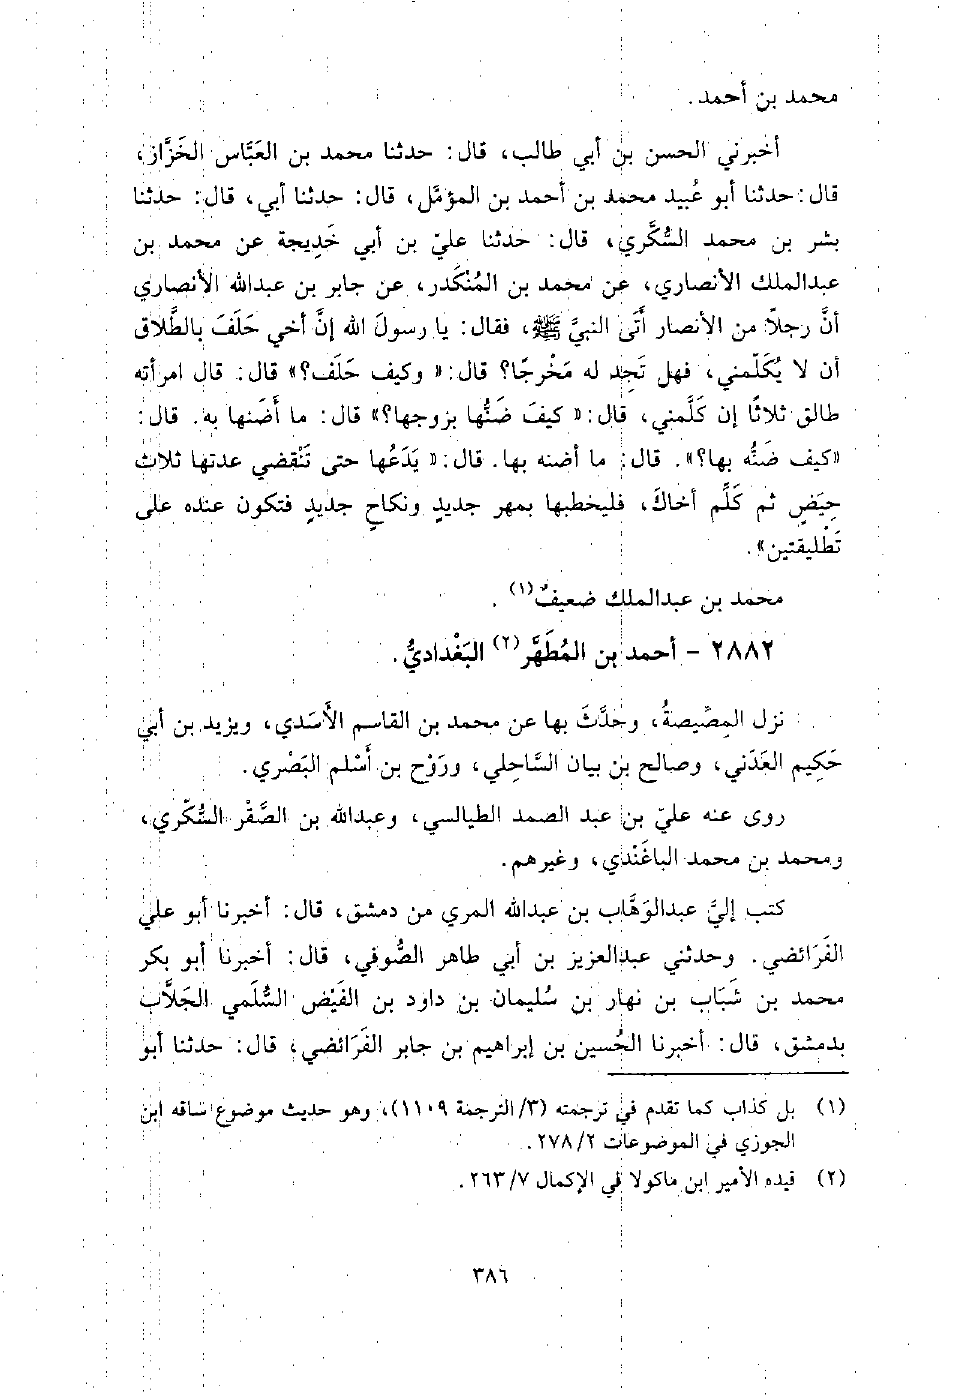 محمد بن أحمد.
أخبرني الحسن بن أبي طالب، قال: حدثنا محمد بن العَبَّاس الخَزَّاز،
قال: حدثنا أبو عُبيد محمد بن أحمد بن المؤمَّل، قال: حدثنا أبي، قال: حدثنا
بشر بن محمد السُّكَّري، قال: حدثنا عليّ بن أبي خَدِيجة عن محمد بن
عبدالملك الأنصاري، عن محمد بن المُنْكَدر، عن جابر بن عبدالله الأنصاري
أنَّ رجلاً من الأنصار أَتَى النبيَّ ﷺ، فقال: يا رسولَ الله إنَّ أخي حَلَفَ بالطَّلاق
أن لا يُكَلِّمني، فهل تَجِد له مَخْرجًا؟ قال: «وكيف حَلَف؟» قال: قال امرأته
طالق ثلاثًا إن كَلَّمني، قال: «كيفَ ضَنُّها بزوجها؟» قال: ما أضَنها به. قال:
«كيف ضَنُّه بها؟». قال: ما أضنه بها. قال: «يَدَعُها حتى تَنْقضي عدتها ثلاث
حِيَضٍ ثم كَلِّم أخاكَ، فليخطبها بمهر جديدٍ ونكاحٍ جديدٍ فتكون عنده على
تَطْليقتين».
محمد بن عبدالملك ضعيفٌ(١).
٢٨٨٢ - أحمد بن المُطَهَّر(٢) البَغْداديُّ.
نزل المِصِّيصةُ، وحَدَّثَ بها عن محمد بن القاسم الأسَدي، ويزيد بن أبي
حَكِيم العَدَني، وصالح بن بيان السَّاحِلي، ورَوْح بن أَسْلم البَصْري.
روى عنه عليّ بن عبد الصمد الطيالسي، وعبدالله بن الصَّقْر السُّكّري،
ومحمد بن محمد الباغَنْدي، وغيرهم.
كتب إليَّ عبدالوَهَّاب بن عبدالله المري من دمشق، قال: أخبرنا أبو علي
الفَرَائضي. وحدثني عبدالعزيز بن أبي طاهر الصُّوفي، قال: أخبرنا أبو بكر
محمد بن شَبَاب بن نهار بن سُليمان بن داود بن الفَيْض السُّلَمي الجَلَّاب
بدمشق، قال: أخبرنا الحُسين بن إبراهيم بن جابر الفَرَائضي، قال: حدثنا أبو
(١) بل كذاب كما تقدم في ترجمته (٣/ الترجمة ١١٠٩)، وهو حديث موضوع ساقه ابن
الجوزي في الموضوعات ٢/ ٢٧٨.
(٢) قيده الأمير ابن ماكولا في الإكمال ٧/ ٢٦٣.
٣٨٦